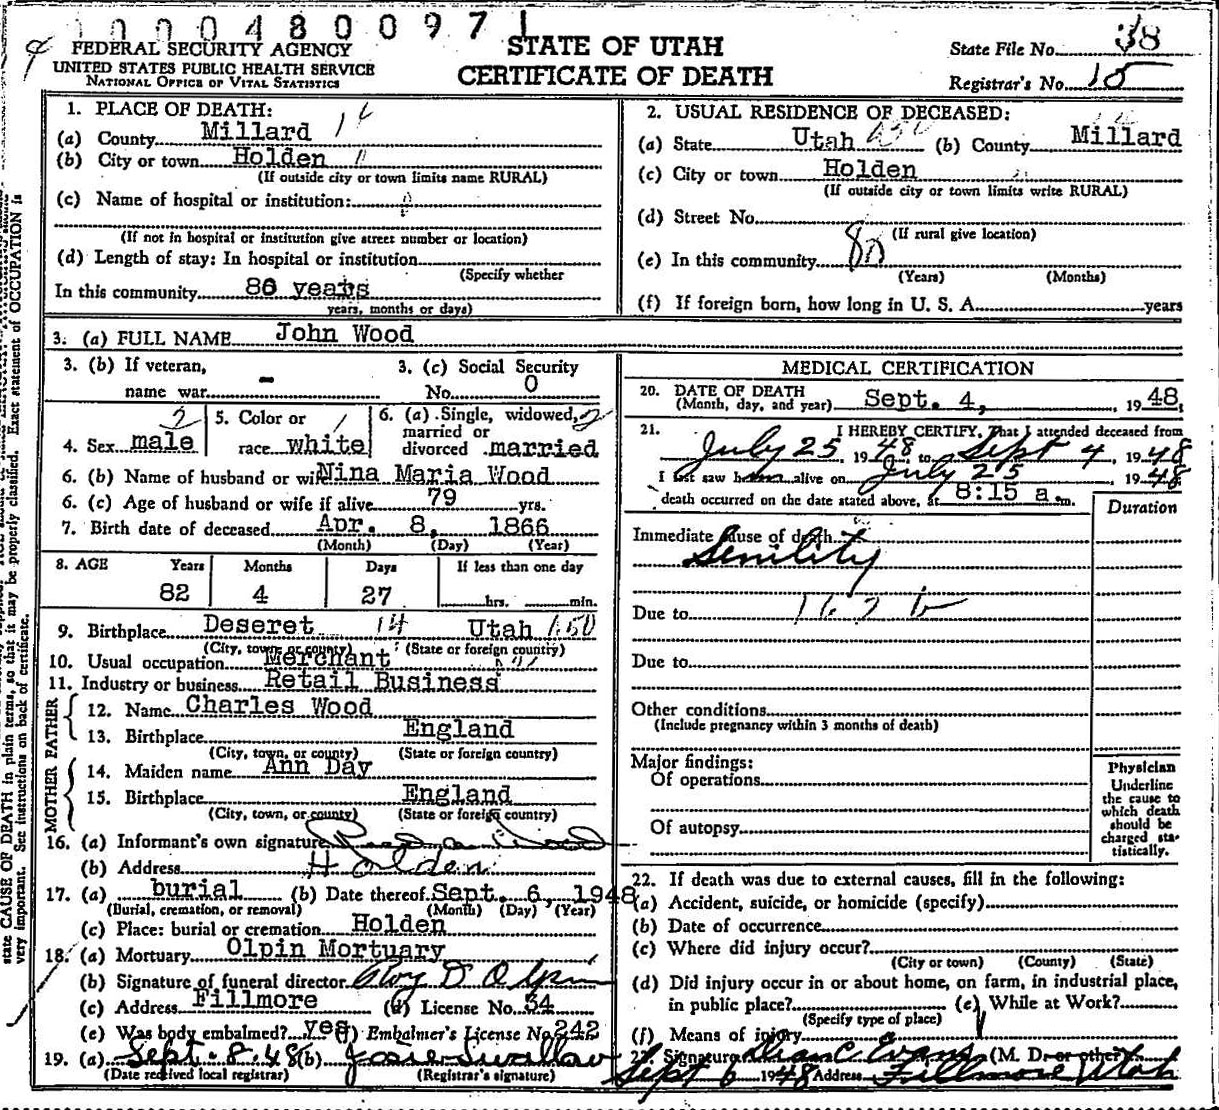 0000480097 1
FEDERAL SECURITY AGENCY
UNITED STATES PUBLIC HEALTH SERVICE
NATIONAL OFFICE OF VITAL STATISTICS
STATE OF UTAH
CERTIFICATE OF DEATH
State File No. 38
Registrar's No. 15
1. PLACE OF DEATH:
(a) County Millard 14
(b) City or town Holden
(If outside city or town limits name RURAL)
(c) Name of hospital or institution:
(If not in hospital or institution give street number or location)
(d) Length of stay: In hospital or institution
(Specify whether
In this community 80 years
years, months or days)
2. USUAL RESIDENCE OF DECEASED:
(a) State Utah (b) County Millard
(c) City or town Holden
(If outside city or town limits write RURAL)
(d) Street No.
(If rural give location)
(e) In this community 80
(Years) (Months)
(f) If foreign born, how long in U. S. A. years
3. (a) FULL NAME John Wood
3. (b) If veteran, name war -
3. (c) Social Security No. 0
4. Sex male
5. Color or race white
6. (a) Single, widowed, married or divorced married
6. (b) Name of husband or wife Nina Maria Wood
6. (c) Age of husband or wife if alive 79 yrs.
7. Birth date of deceased Apr. 8, 1866
(Month) (Day) (Year)
8. AGE Years Months Days If less than one day
82 4 27 hrs. min.
9. Birthplace Deseret 14 Utah 650
(City, town, or county) (State or foreign country)
10. Usual occupation Merchant
11. Industry or business Retail Business
FATHER
12. Name Charles Wood
13. Birthplace England
(City, town, or county) (State or foreign country)
MOTHER
14. Maiden name Ann Day
15. Birthplace England
(City, town, or county) (State or foreign country)
16. (a) Informant's own signature Wood
(b) Address Holden
17. (a) burial (b) Date thereof Sept. 6, 1948
(Burial, cremation, or removal) (Month) (Day) (Year)
(c) Place: burial or cremation Holden
18. (a) Mortuary Olpin Mortuary
(b) Signature of funeral director D Olpin
(c) Address Fillmore (d) License No. 34
(e) Was body embalmed? yes (f) Embalmer's License No. 242
19. (a) Sept. 8. 48 (b) Josie Swallow
(Date received local registrar) (Registrar's signature)
MEDICAL CERTIFICATION
20. DATE OF DEATH
(Month, day, and year) Sept. 4, 1948
21. I HEREBY CERTIFY, That I attended deceased from
July 25, 1948 to Sept 4 1948
I last saw him alive on July 25 1948
death occurred on the date stated above, at 8:15 a m.
Duration
Immediate cause of death
Senility
Due to 162 b
Due to
Other conditions
(Include pregnancy within 3 months of death)
Major findings:
Of operations
Of autopsy
Physician
Underline
the cause to
which death
should be
charged sta-
tistically.
22. If death was due to external causes, fill in the following:
(a) Accident, suicide, or homicide (specify)
(b) Date of occurrence
(c) Where did injury occur?
(City or town) (County) (State)
(d) Did injury occur in or about home, on farm, in industrial place,
in public place? (e) While at Work?
(Specify type of place)
(f) Means of injury
23. Signature Dean C. Evans (M. D. or other)
Sept 6 1948 Address Fillmore Utah
state CAUSE OF DEATH in plain terms, so that it may be properly classified. Exact statement of OCCUPATION is
very important. See instructions on back of certificate.